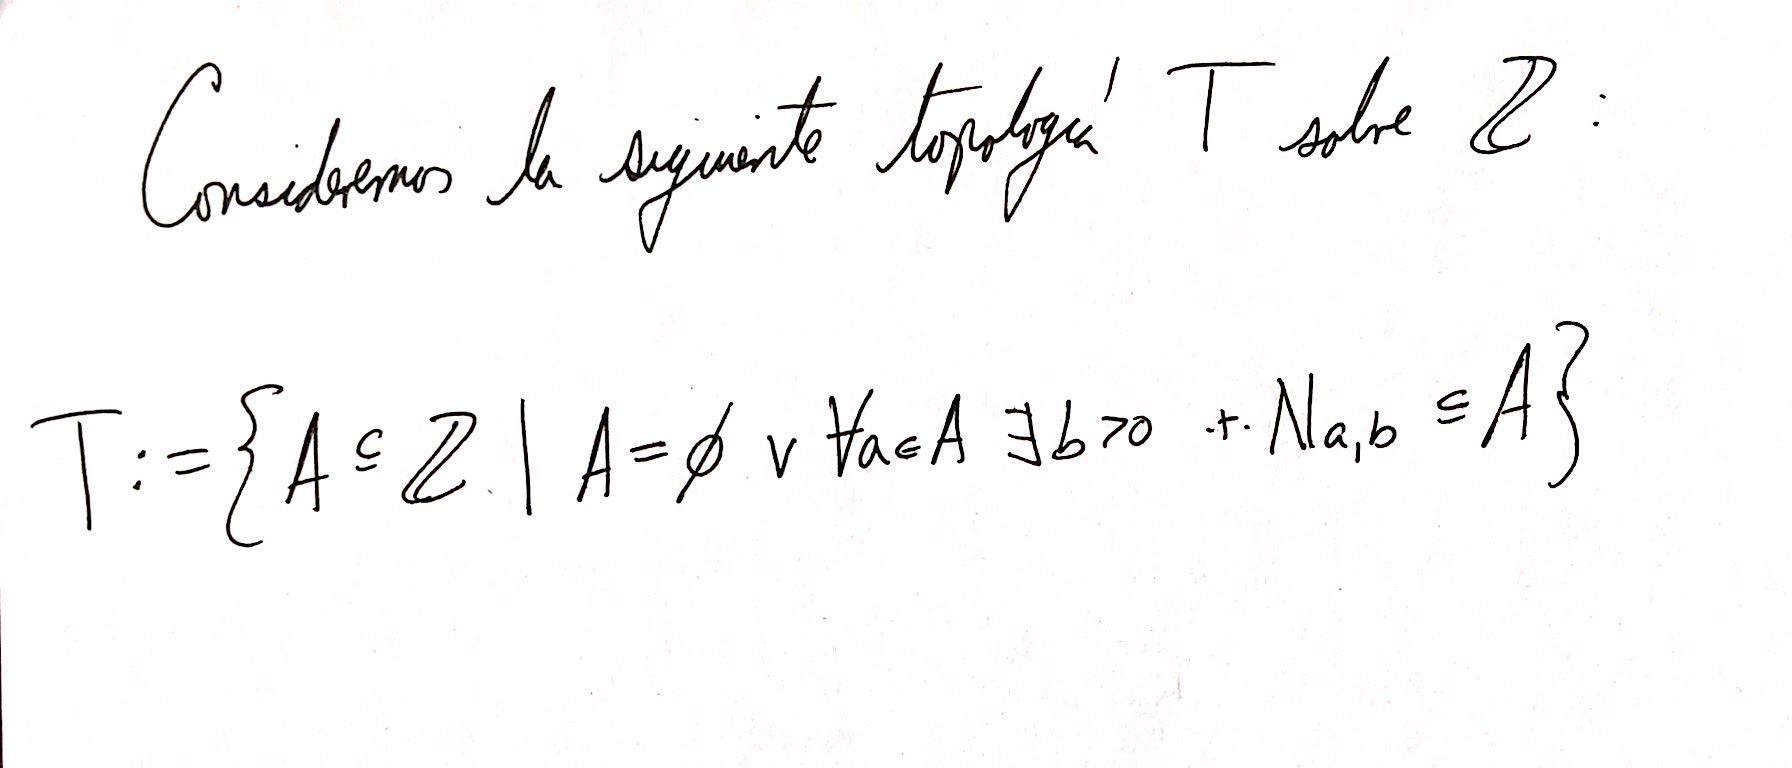 Consideremos la siguiente topología T sobre ℤ:
T:={A ⊆ ℤ | A=∅ ∨ ∀a∈A ∃b>0 .t. N_{a,b} ⊆ A}